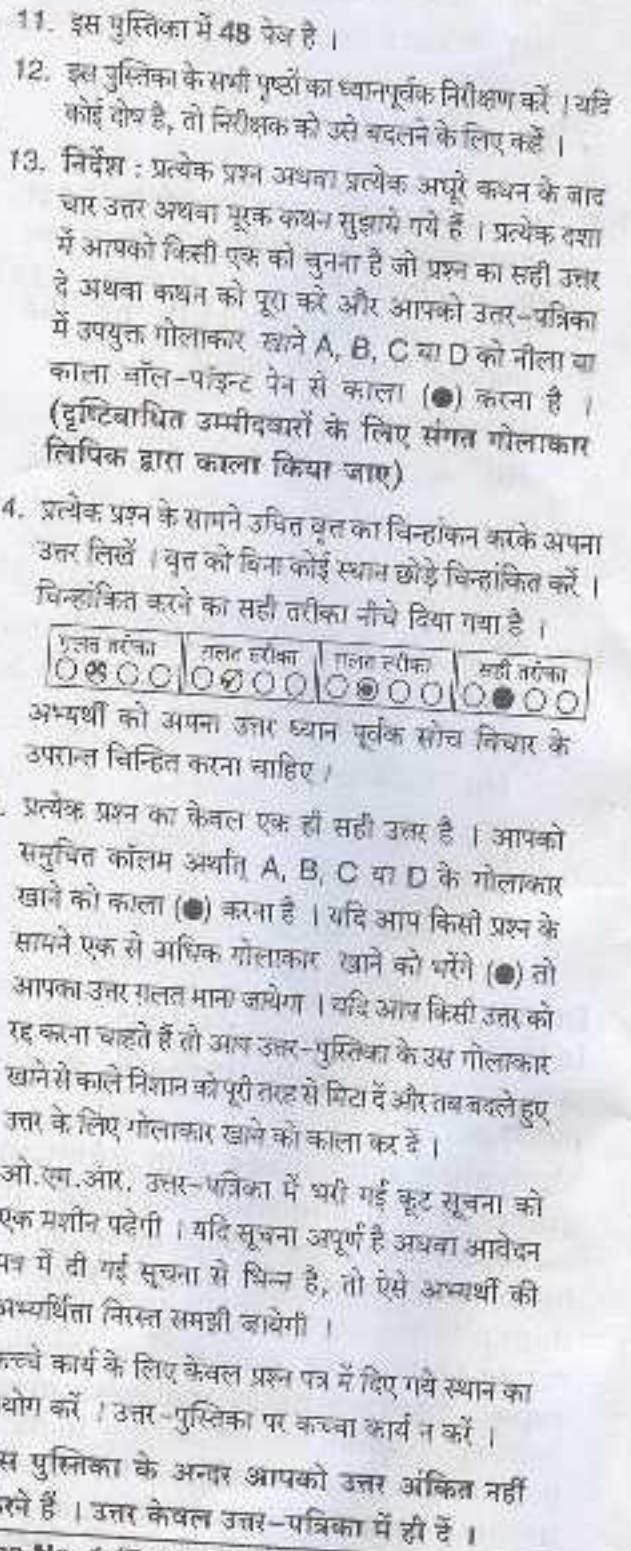 11. इस पुस्तिका में 48 पेज है ।
12. इस पुस्तिका के सभी पृष्ठों का ध्यानपूर्वक निरीक्षण करें । यदि
कोई दोष है, तो निरीक्षक को उसे बदलने के लिए कहें ।
13. निर्देश : प्रत्येक प्रश्न अथवा प्रत्येक अधूरे कथन के बाद
चार उत्तर अथवा पूरक कथन सुझाये गये हैं । प्रत्येक दशा
में आपको किसी एक को चुनना है जो प्रश्न का सही उत्तर
दे अथवा कथन को पूरा करे और आपको उत्तर-पत्रिका
में उपयुक्त गोलाकार खाने A, B, C या D को नीला या
काला बॉल-पॉइन्ट पेन से काला (●) करना है ।
(दृष्टिबाधित उम्मीदवारों के लिए संगत गोलाकार
लिपिक द्वारा काला किया जाए)
4. प्रत्येक प्रश्न के सामने उचित वृत्त का चिन्हांकन करके अपना
उत्तर लिखें । वृत्त को बिना कोई स्थान छोड़े चिन्हांकित करें ।
चिन्हांकित करने का सही तरीका नीचे दिया गया है ।
ग़लत तरीका ग़लत तरीका ग़लत तरीका सही तरीका
अभ्यर्थी को अपना उत्तर ध्यान पूर्वक सोच विचार के
उपरान्त चिन्हित करना चाहिए ।
. प्रत्येक प्रश्न का केवल एक ही सही उत्तर है । आपको
समुचित कॉलम अर्थात् A, B, C या D के गोलाकार
खाने को काला (●) करना है । यदि आप किसी प्रश्न के
सामने एक से अधिक गोलाकार खाने को भरेंगे (●) तो
आपका उत्तर ग़लत माना जायेगा । यदि आप किसी उत्तर को
रद्द करना चाहते हैं तो आप उत्तर-पुस्तिका के उस गोलाकार
खाने से काले निशान को पूरी तरह से मिटा दें और तब बदले हुए
उत्तर के लिए गोलाकार खाने को काला कर दें ।
ओ.एम.आर. उत्तर-पत्रिका में भरी गई कूट सूचना को
एक मशीन पढेगी । यदि सूचना अपूर्ण है अथवा आवेदन
पत्र में दी गई सूचना से भिन्न है, तो ऐसे अभ्यर्थी की
अभ्यर्थिता निरस्त समझी जायेगी ।
कच्चे कार्य के लिए केवल प्रश्न पत्र में दिए गये स्थान का
योग करें । उत्तर-पुस्तिका पर कच्चा कार्य न करें ।
स पुस्तिका के अन्दर आपको उत्तर अंकित नहीं
रने हैं । उत्तर केवल उत्तर-पत्रिका में ही दें ।